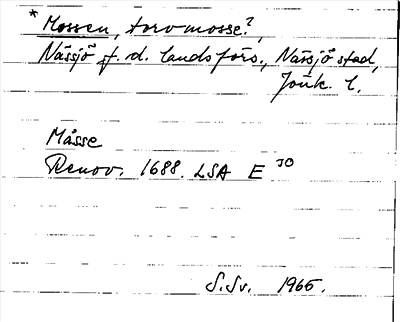 * Mossen, torvmosse?,
Nässjö f.d. landsförs., Nässjö stad,
Jönk. l.
Måsse
Renov. 1688. LSA E 30
S.Sv. 1965.